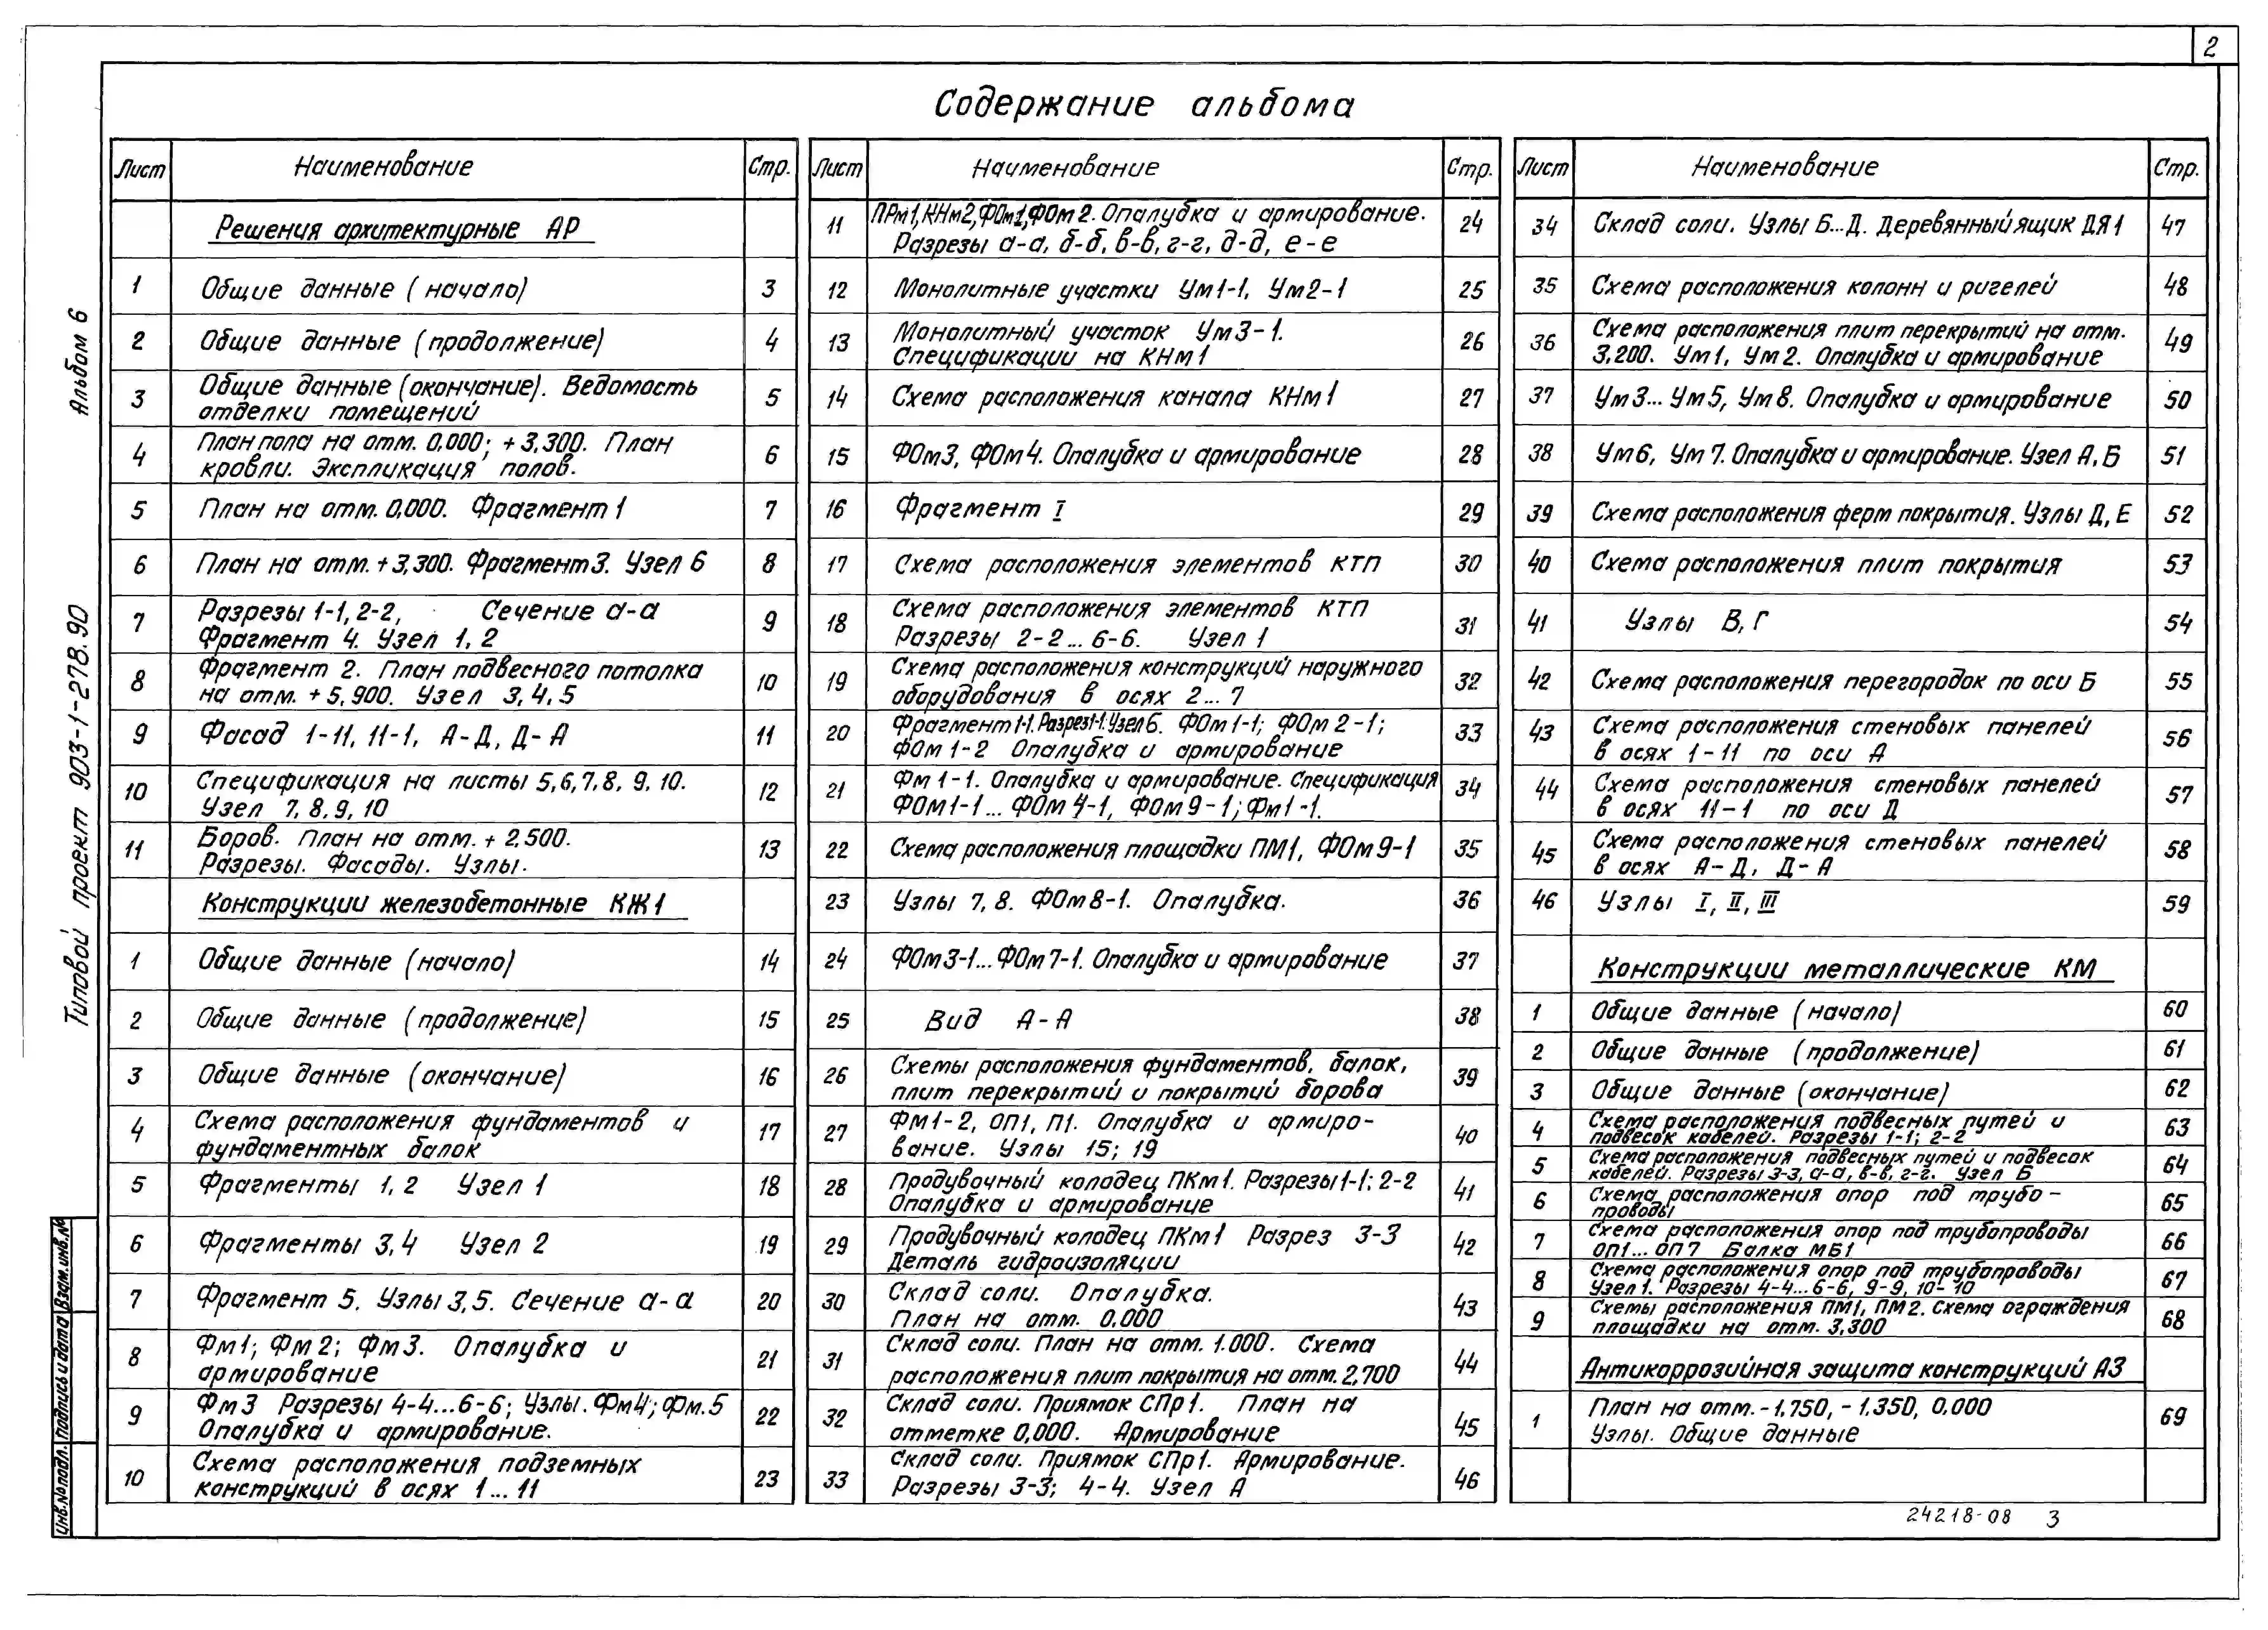 2
Содержание альбома
Альбом 6
Типовой проект 903-1-278.90
Взам.инв.№
Подпись и дата
Инв.№подл.
Лист Наименование Стр.
Решения архитектурные АР
1 Общие данные (начало) 3
2 Общие данные (продолжение) 4
3 Общие данные (окончание). Ведомость 5
отделки помещений
4 План пола на отм. 0,000; +3,300. План 6
кровли. Экспликация полов.
5 План на отм. 0,000. Фрагмент 1 7
6 План на отм. +3,300. Фрагмент 3. Узел 6 8
7 Разрезы 1-1, 2-2, Сечение а-а 9
Фрагмент 4. Узел 1, 2
8 Фрагмент 2. План подвесного потолка 10
на отм. +5,900. Узел 3, 4, 5
9 Фасад 1-11, 11-1, А-Д, Д-А 11
10 Спецификация на листы 5,6,7,8, 9, 10. 12
Узел 7, 8, 9, 10
11 Боров. План на отм. + 2,500. 13
Разрезы. Фасады. Узлы.
Конструкции железобетонные КЖ1
1 Общие данные (начало) 14
2 Общие данные (продолжение) 15
3 Общие данные (окончание) 16
4 Схема расположения фундаментов и 17
фундаментных балок
5 Фрагменты 1, 2 Узел 1 18
6 Фрагменты 3,4 Узел 2 19
7 Фрагмент 5. Узлы 3,5. Сечение а-а 20
8 Фм1; Фм2; Фм3. Опалубка и 21
армирование
9 Фм3 Разрезы 4-4...6-6; Узлы. Фм4; Фм.5 22
Опалубка и армирование.
10 Схема расположения подземных 23
конструкций в осях 1... 11
Лист Наименование Стр.
11 ПРм1, КНм2, ФОм1, ФОм2. Опалубка и армирование. 24
Разрезы а-а, б-б, в-в, г-г, д-д, е-е
12 Монолитные участки Ум1-1, Ум2-1 25
13 Монолитный участок Ум3-1. 26
Спецификации на КНм1
14 Схема расположения канала КНм1 27
15 ФОм3, ФОм4. Опалубка и армирование 28
16 Фрагмент I 29
17 Схема расположения элементов КТП 30
18 Схема расположения элементов КТП 31
Разрезы 2-2... 6-6. Узел 1
19 Схема расположения конструкций наружного 32
оборудования в осях 2... 7
20 Фрагмент 1-1. Разрез 1-1. Узел 6. ФОм1-1; ФОм2-1; 33
ФОм 1-2 Опалубка и армирование
21 Фм 1-1. Опалубка и армирование. Спецификация 34
ФОм1-1... ФОм 4-1, ФОм9-1; Фм1-1.
22 Схема расположения площадки ПМ1, ФОм9-1 35
23 Узлы 7, 8. ФОм8-1. Опалубка. 36
24 ФОм3-1...ФОм7-1. Опалубка и армирование 37
25 Вид А-А 38
26 Схемы расположения фундаментов, балок, 39
плит перекрытий и покрытий борова
27 Фм1-2, ОП1, П1. Опалубка и армиро- 40
вание. Узлы 15; 19
28 Продувочный колодец ПКм1. Разрезы 1-1; 2-2 41
Опалубка и армирование
29 Продувочный колодец ПКм1 Разрез 3-3 42
Деталь гидроизоляции
30 Склад соли. Опалубка. 43
План на отм. 0,000
31 Склад соли. План на отм. 1.000. Схема 44
расположения плит покрытия на отм. 2,700
32 Склад соли. Приямок СПр1. План на 45
отметке 0,000. Армирование
33 Склад соли. Приямок СПр1. Армирование. 46
Разрезы 3-3; 4-4. Узел А
Лист Наименование Стр.
34 Склад соли. Узлы Б...Д. Деревянный ящик ДЯ1 47
35 Схема расположения колонн и ригелей 48
36 Схема расположения плит перекрытий на отм. 49
3,200. Ум1, Ум2. Опалубка и армирование
37 Ум3... Ум5, Ум8. Опалубка и армирование 50
38 Ум6, Ум7. Опалубка и армирование. Узел А, Б 51
39 Схема расположения ферм покрытия. Узлы Д, Е 52
40 Схема расположения плит покрытия 53
41 Узлы В, Г 54
42 Схема расположения перегородок по оси Б 55
43 Схема расположения стеновых панелей 56
в осях 1-11 по оси А
44 Схема расположения стеновых панелей 57
в осях 11-1 по оси Д
45 Схема расположения стеновых панелей 58
в осях А-Д, Д-А
46 Узлы I, II, III 59
Конструкции металлические КМ
1 Общие данные (начало) 60
2 Общие данные (продолжение) 61
3 Общие данные (окончание) 62
4 Схема расположения подвесных путей и 63
подвесок кабелей. Разрезы 1-1; 2-2
5 Схема расположения подвесных путей и подвесок 64
кабелей. Разрезы 3-3, а-а, в-в, г-г. Узел Б
6 Схема расположения опор под трубо- 65
проводы
7 Схема расположения опор под трубопроводы 66
ОП1... ОП7 Балка МБ1
8 Схема расположения опор под трубопроводы 67
Узел 1. Разрезы 4-4...6-6, 9-9, 10-10
9 Схемы расположения ПМ1, ПМ2. Схема ограждения 68
площадки на отм. 3,300
Антикоррозийная защита конструкций АЗ
1 План на отм. -1,750, -1,350, 0,000 69
Узлы. Общие данные
24218-08 3